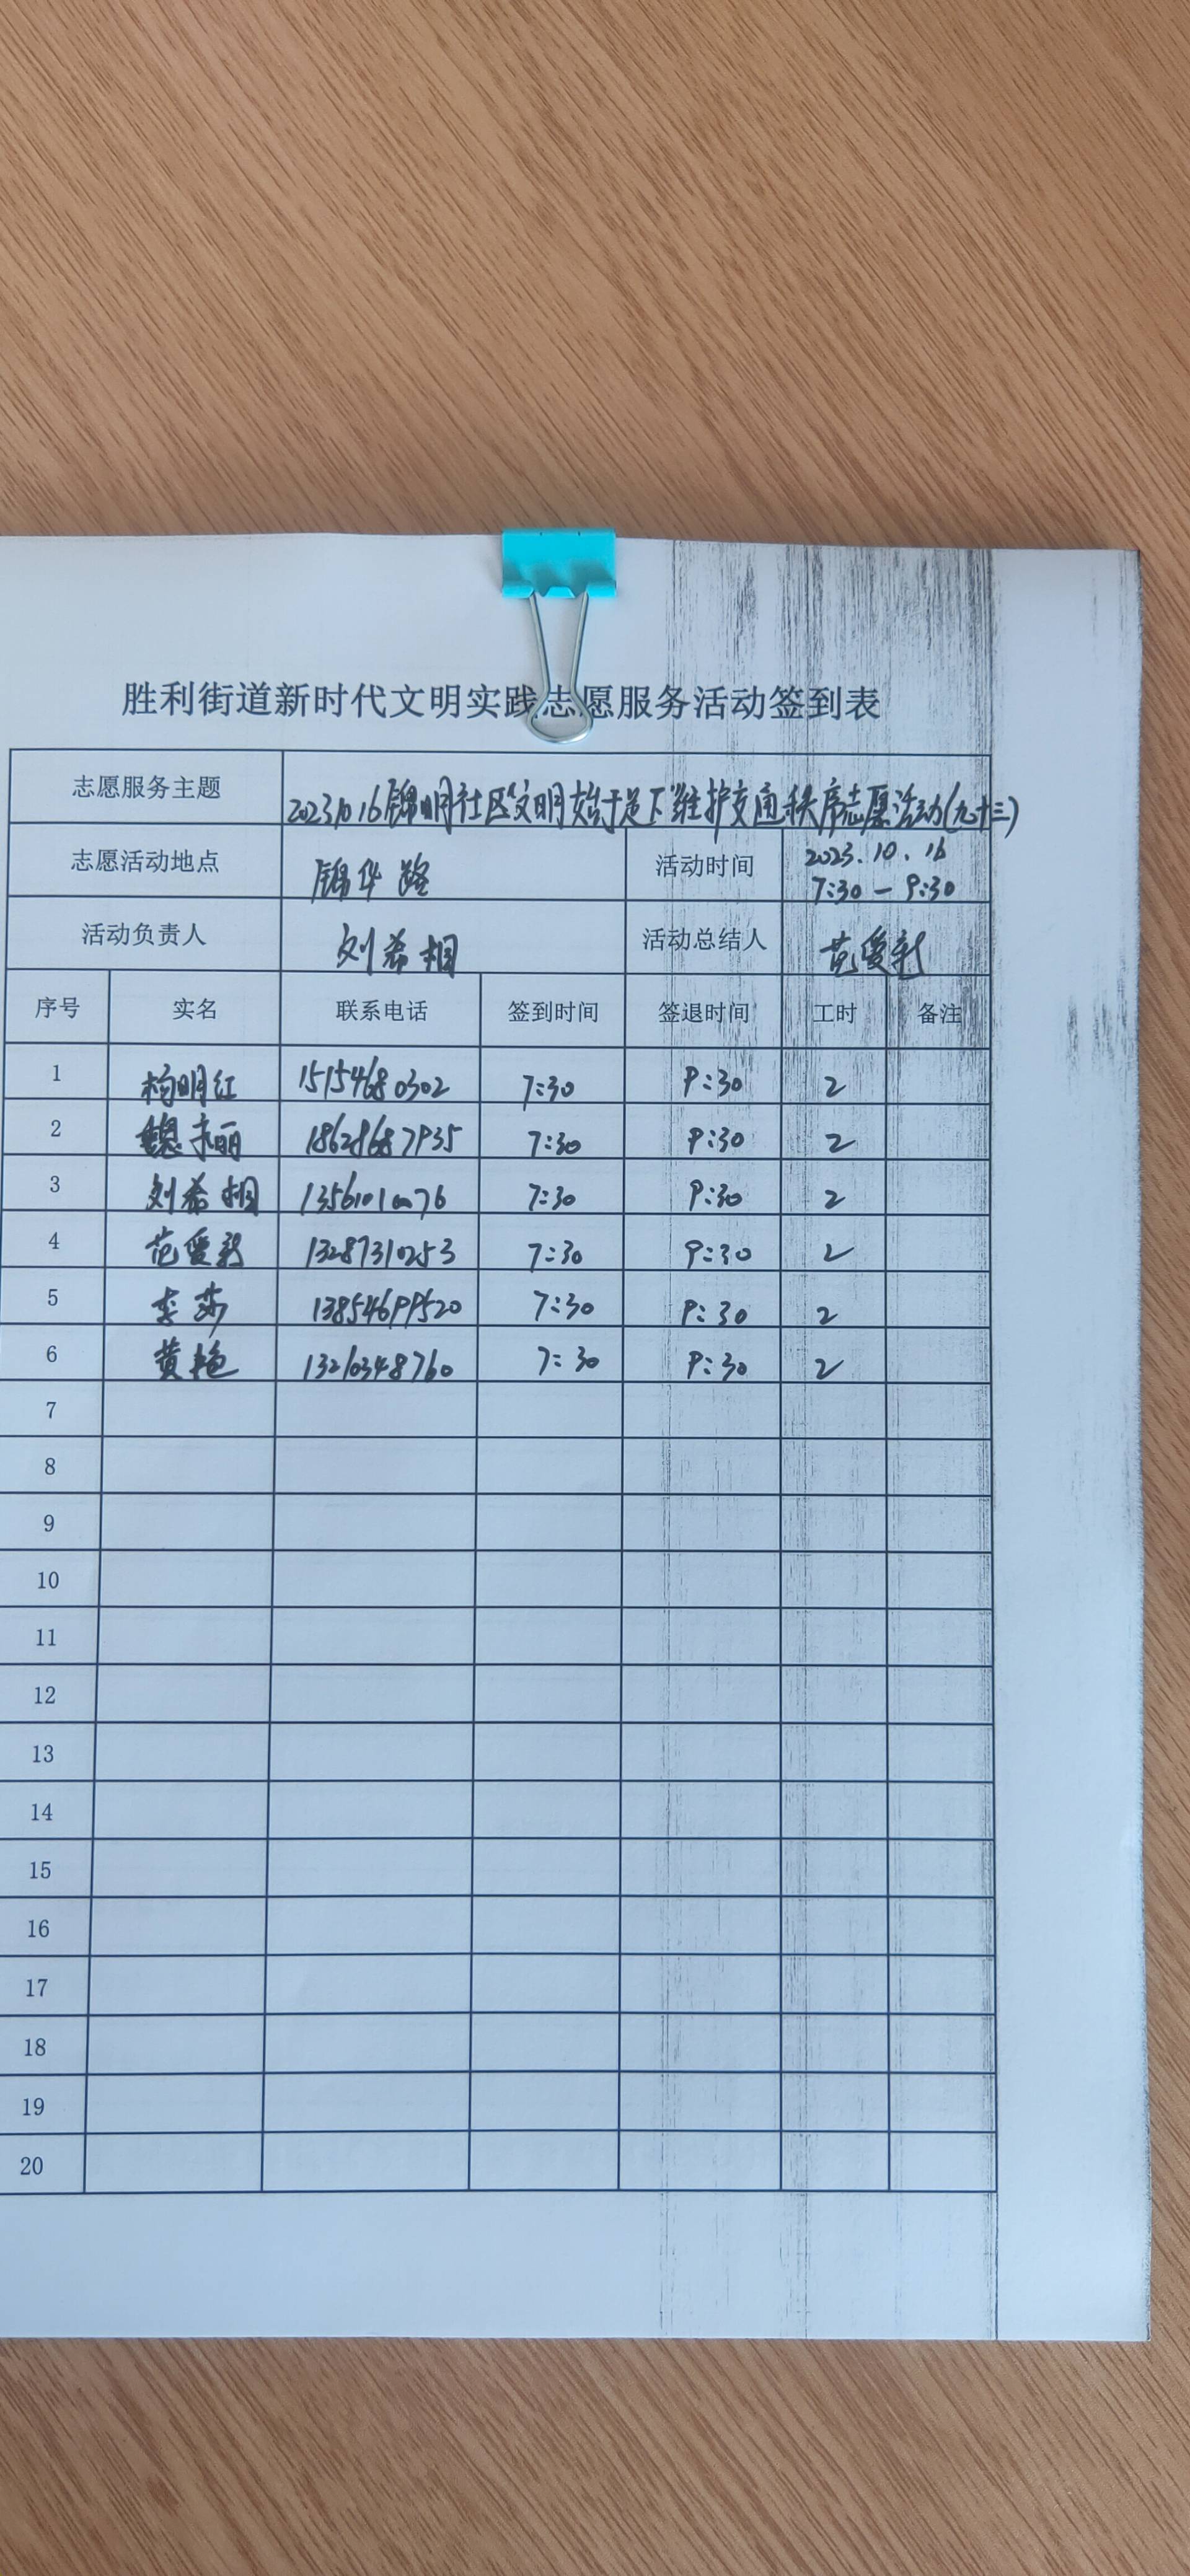 胜利街道新时代文明实践志愿服务活动签到表
志愿服务主题 2023.10.16锦明社区"文明始于足下"维护交通秩序志愿活动(九十三)
志愿活动地点 锦华路 活动时间 2023.10.16
7:30-9:30
活动负责人 刘希相 活动总结人 范爱新
序号 实名 联系电话 签到时间 签退时间 工时 备注
1 杨明红 15154680302 7:30 9:30 2
2 魏丽 7:30 9:30 2
3 刘希相 13561010076 7:30 9:30 2
4 范爱新 13287310253 7:30 9:30 2
5 李莎 13854699520 7:30 9:30 2
6 黄艳 13210348760 7:30 9:30 2
7
8
9
10
11
12
13
14
15
16
17
18
19
20